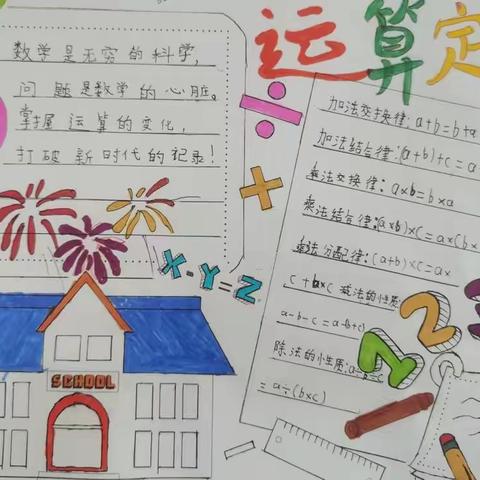 运算定
数学是无穷的科学,
问题是数学的心脏。
掌握运算的变化,
打破新时代的记录!
加法交换律:a+b=b+a
加法结合律:(a+b)+c=a
乘法交换律:a×b=b×a
乘法结合律:(a×b)×c=a×(b×
乘法分配律:(a+b)×c=a×
c+b×c 减法的性质:
a-b-c=a-(b+c)
除法的性质:a÷b÷c
=a÷(b×c)
X-Y=Z
SCHOOL
123